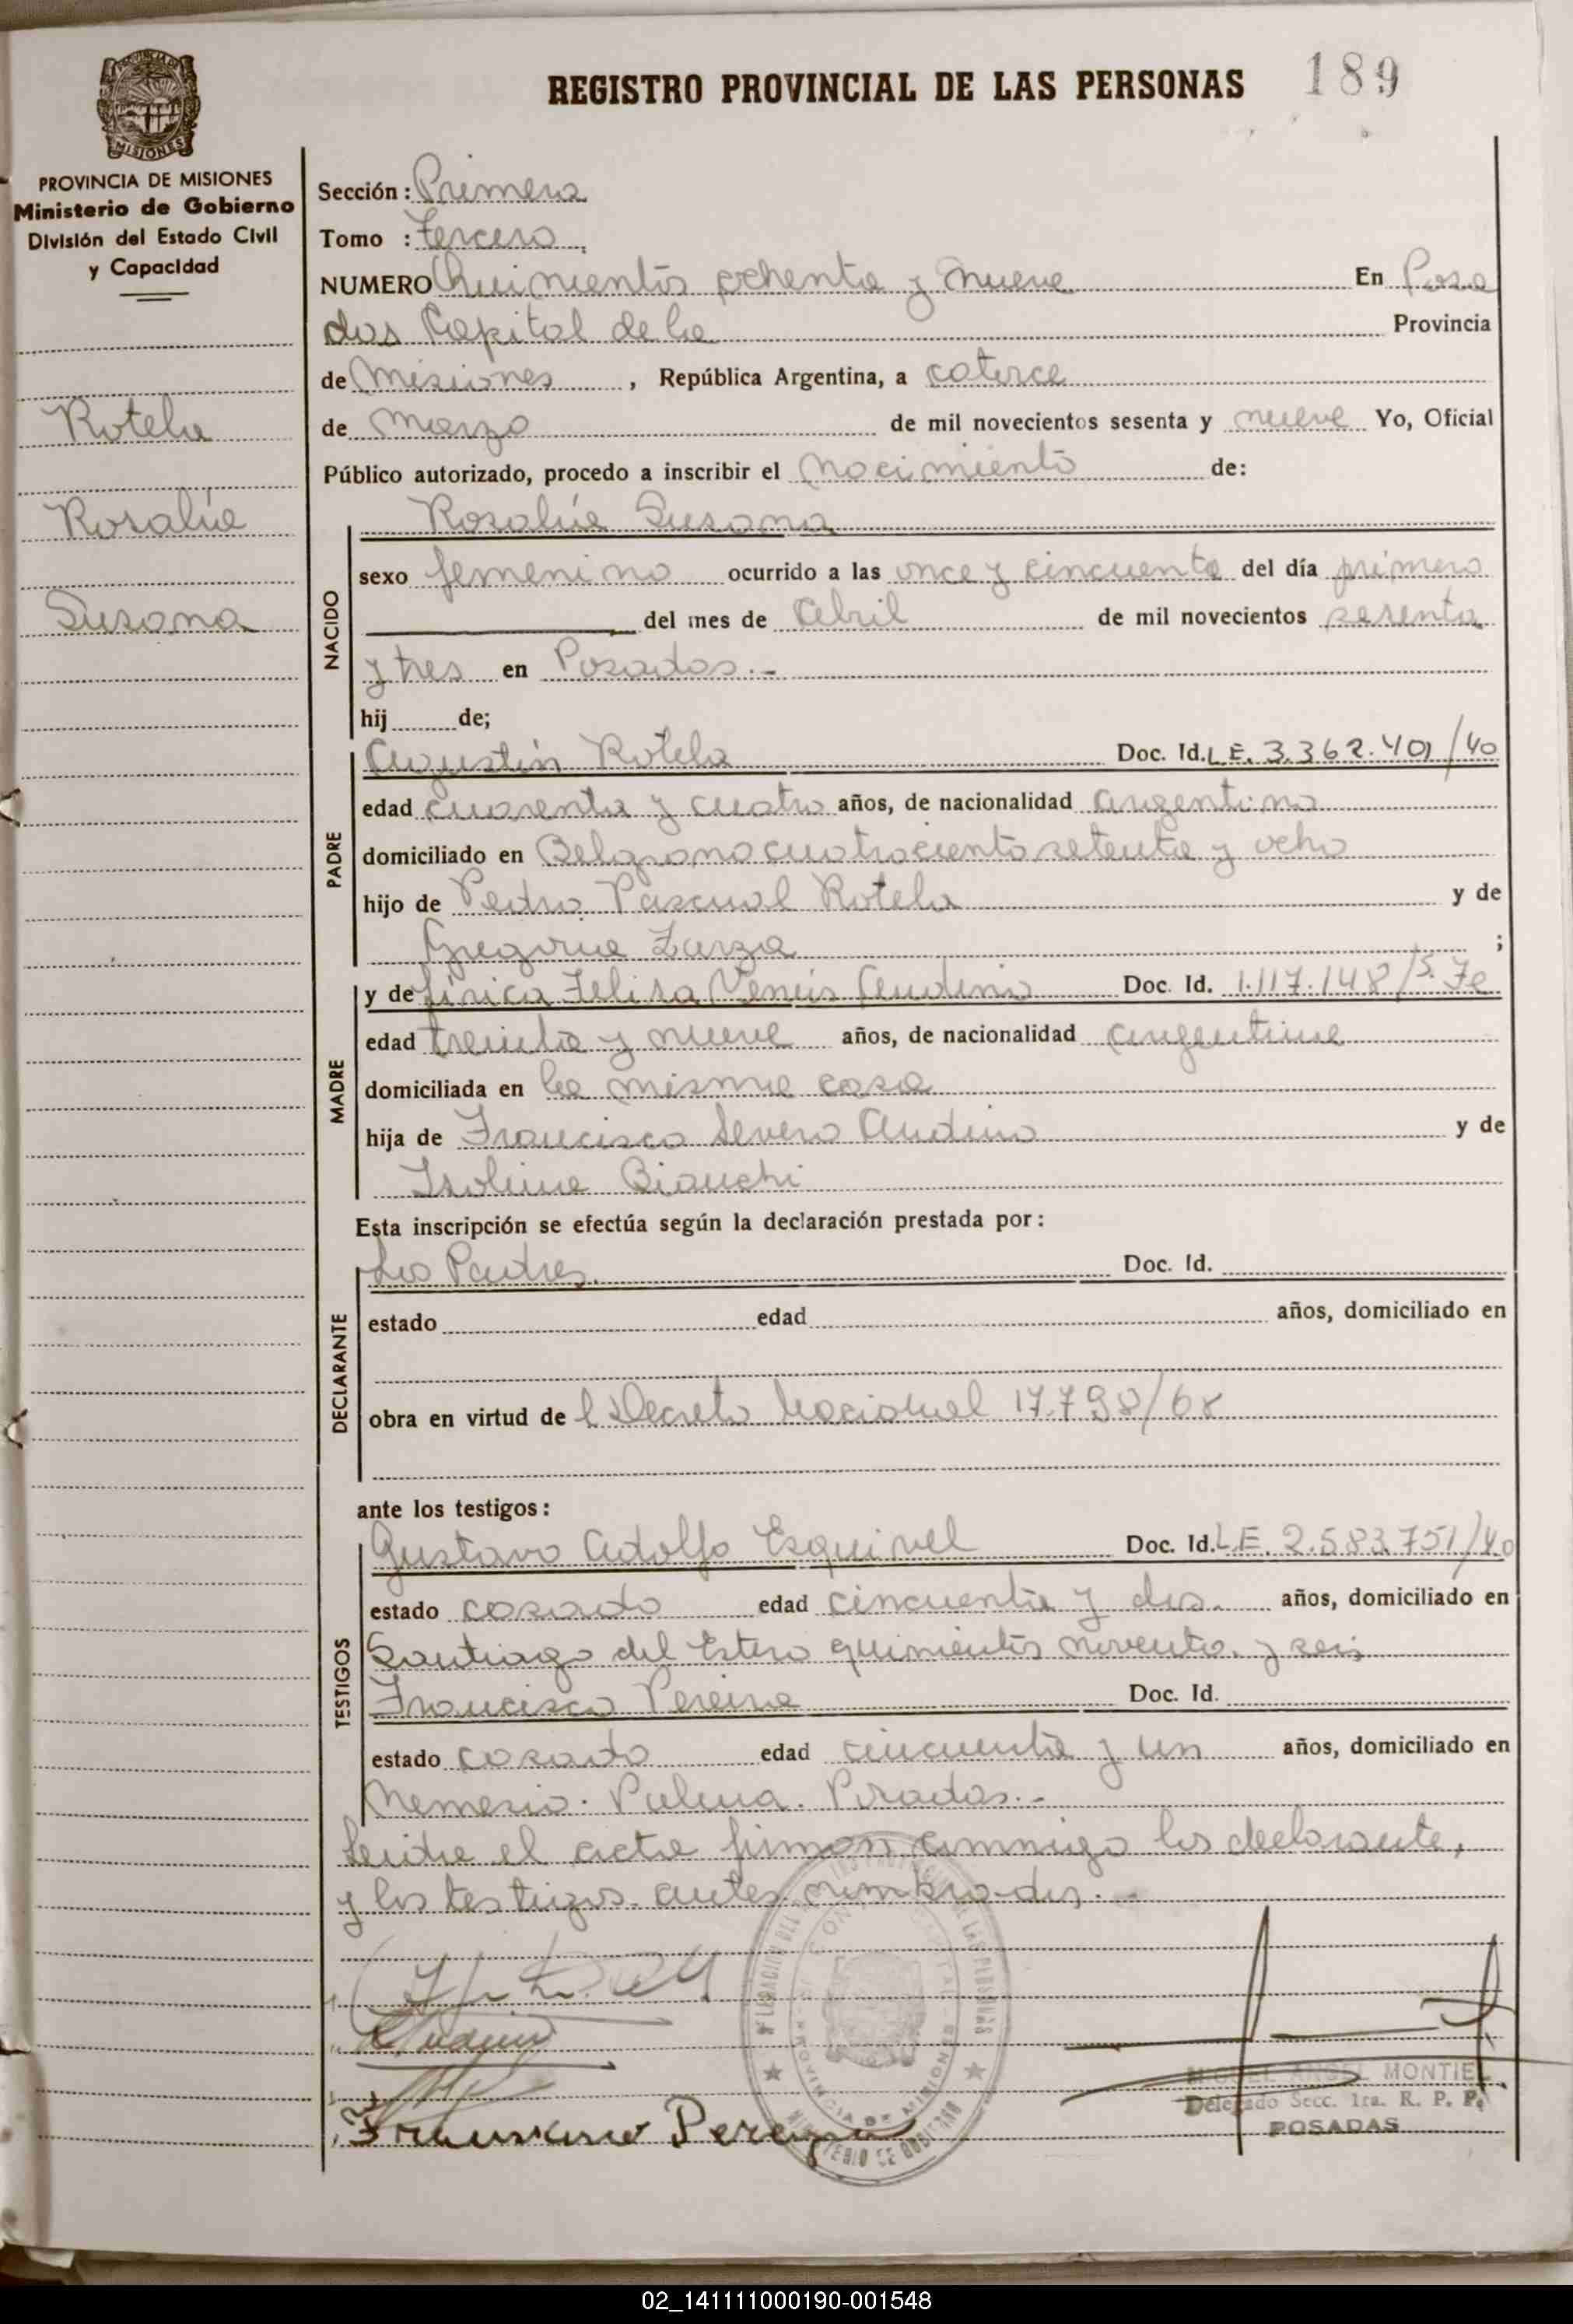 REGISTRO PROVINCIAL DE LAS PERSONAS 189
MISIONES
PROVINCIA DE MISIONES
Ministerio de Gobierno
División del Estado Civil
y Capacidad
Rotela
Rosalía
Susana
Sección: Primera
Tomo : tercero
NUMERO Quinientos ochenta y nueve En Posa
das Capital de la Provincia
de Misiones, República Argentina, a catorce
de marzo de mil novecientos sesenta y nueve Yo, Oficial
Público autorizado, procedo a inscribir el nacimiento de:
NACIDO
Rosalía Susana
sexo femenino ocurrido a las once y cincuenta del día primero
del mes de Abril de mil novecientos sesenta
y tres en Posadas.-
hij de;
PADRE
Agustín Rotela Doc. Id. L.E. 3.362.401/40
edad cuarenta y cuatro años, de nacionalidad argentino
domiciliado en Belgrano cuatrociento setenta y ocho
hijo de Pedro Pascual Rotela y de
Gregoria Zarza ;
MADRE
y de Lírica Felisa Venus Andino Doc. Id. 1.117.148
edad treinta y nueve años, de nacionalidad argentina
domiciliada en la misma casa
hija de Francisco Severo Andino y de
Isolina Bianchi
Esta inscripción se efectúa según la declaración prestada por:
DECLARANTE
Los Padres. Doc. Id.
estado edad años, domiciliado en
obra en virtud de l Decreto Nacional 17.798/68
ante los testigos:
TESTIGOS
Gustavo Adolfo Esquivel Doc. Id. L.E. 2.583.751/40
estado casado edad cincuenta y dos. años, domiciliado en
Santiago del Estero quinientos noventa y seis
Francisco Pereira Doc. Id.
estado casado edad cincuenta y un años, domiciliado en
Nemesio. Palma. Posadas.-
Leida el acta firman conmigo los declarante,
y los testigos antes nombrados.-
Andino
Francisco Pereira
MIGUEL ANGEL MONTIEL
Delegado Secc. 1ra. R. P. P.
POSADAS
PROVINCIA DE MISIONES
MINISTERIO DE GOBIERNO
02_141111000190-001548